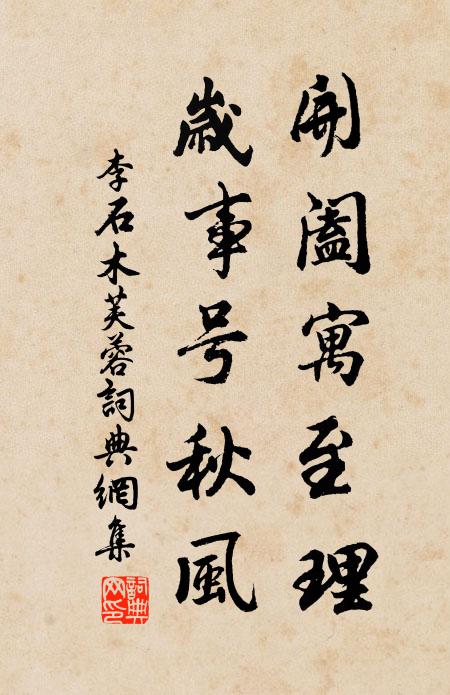 開阖寓至理
歲事号秋風
李石木芙蓉詞典網集
詞典网印